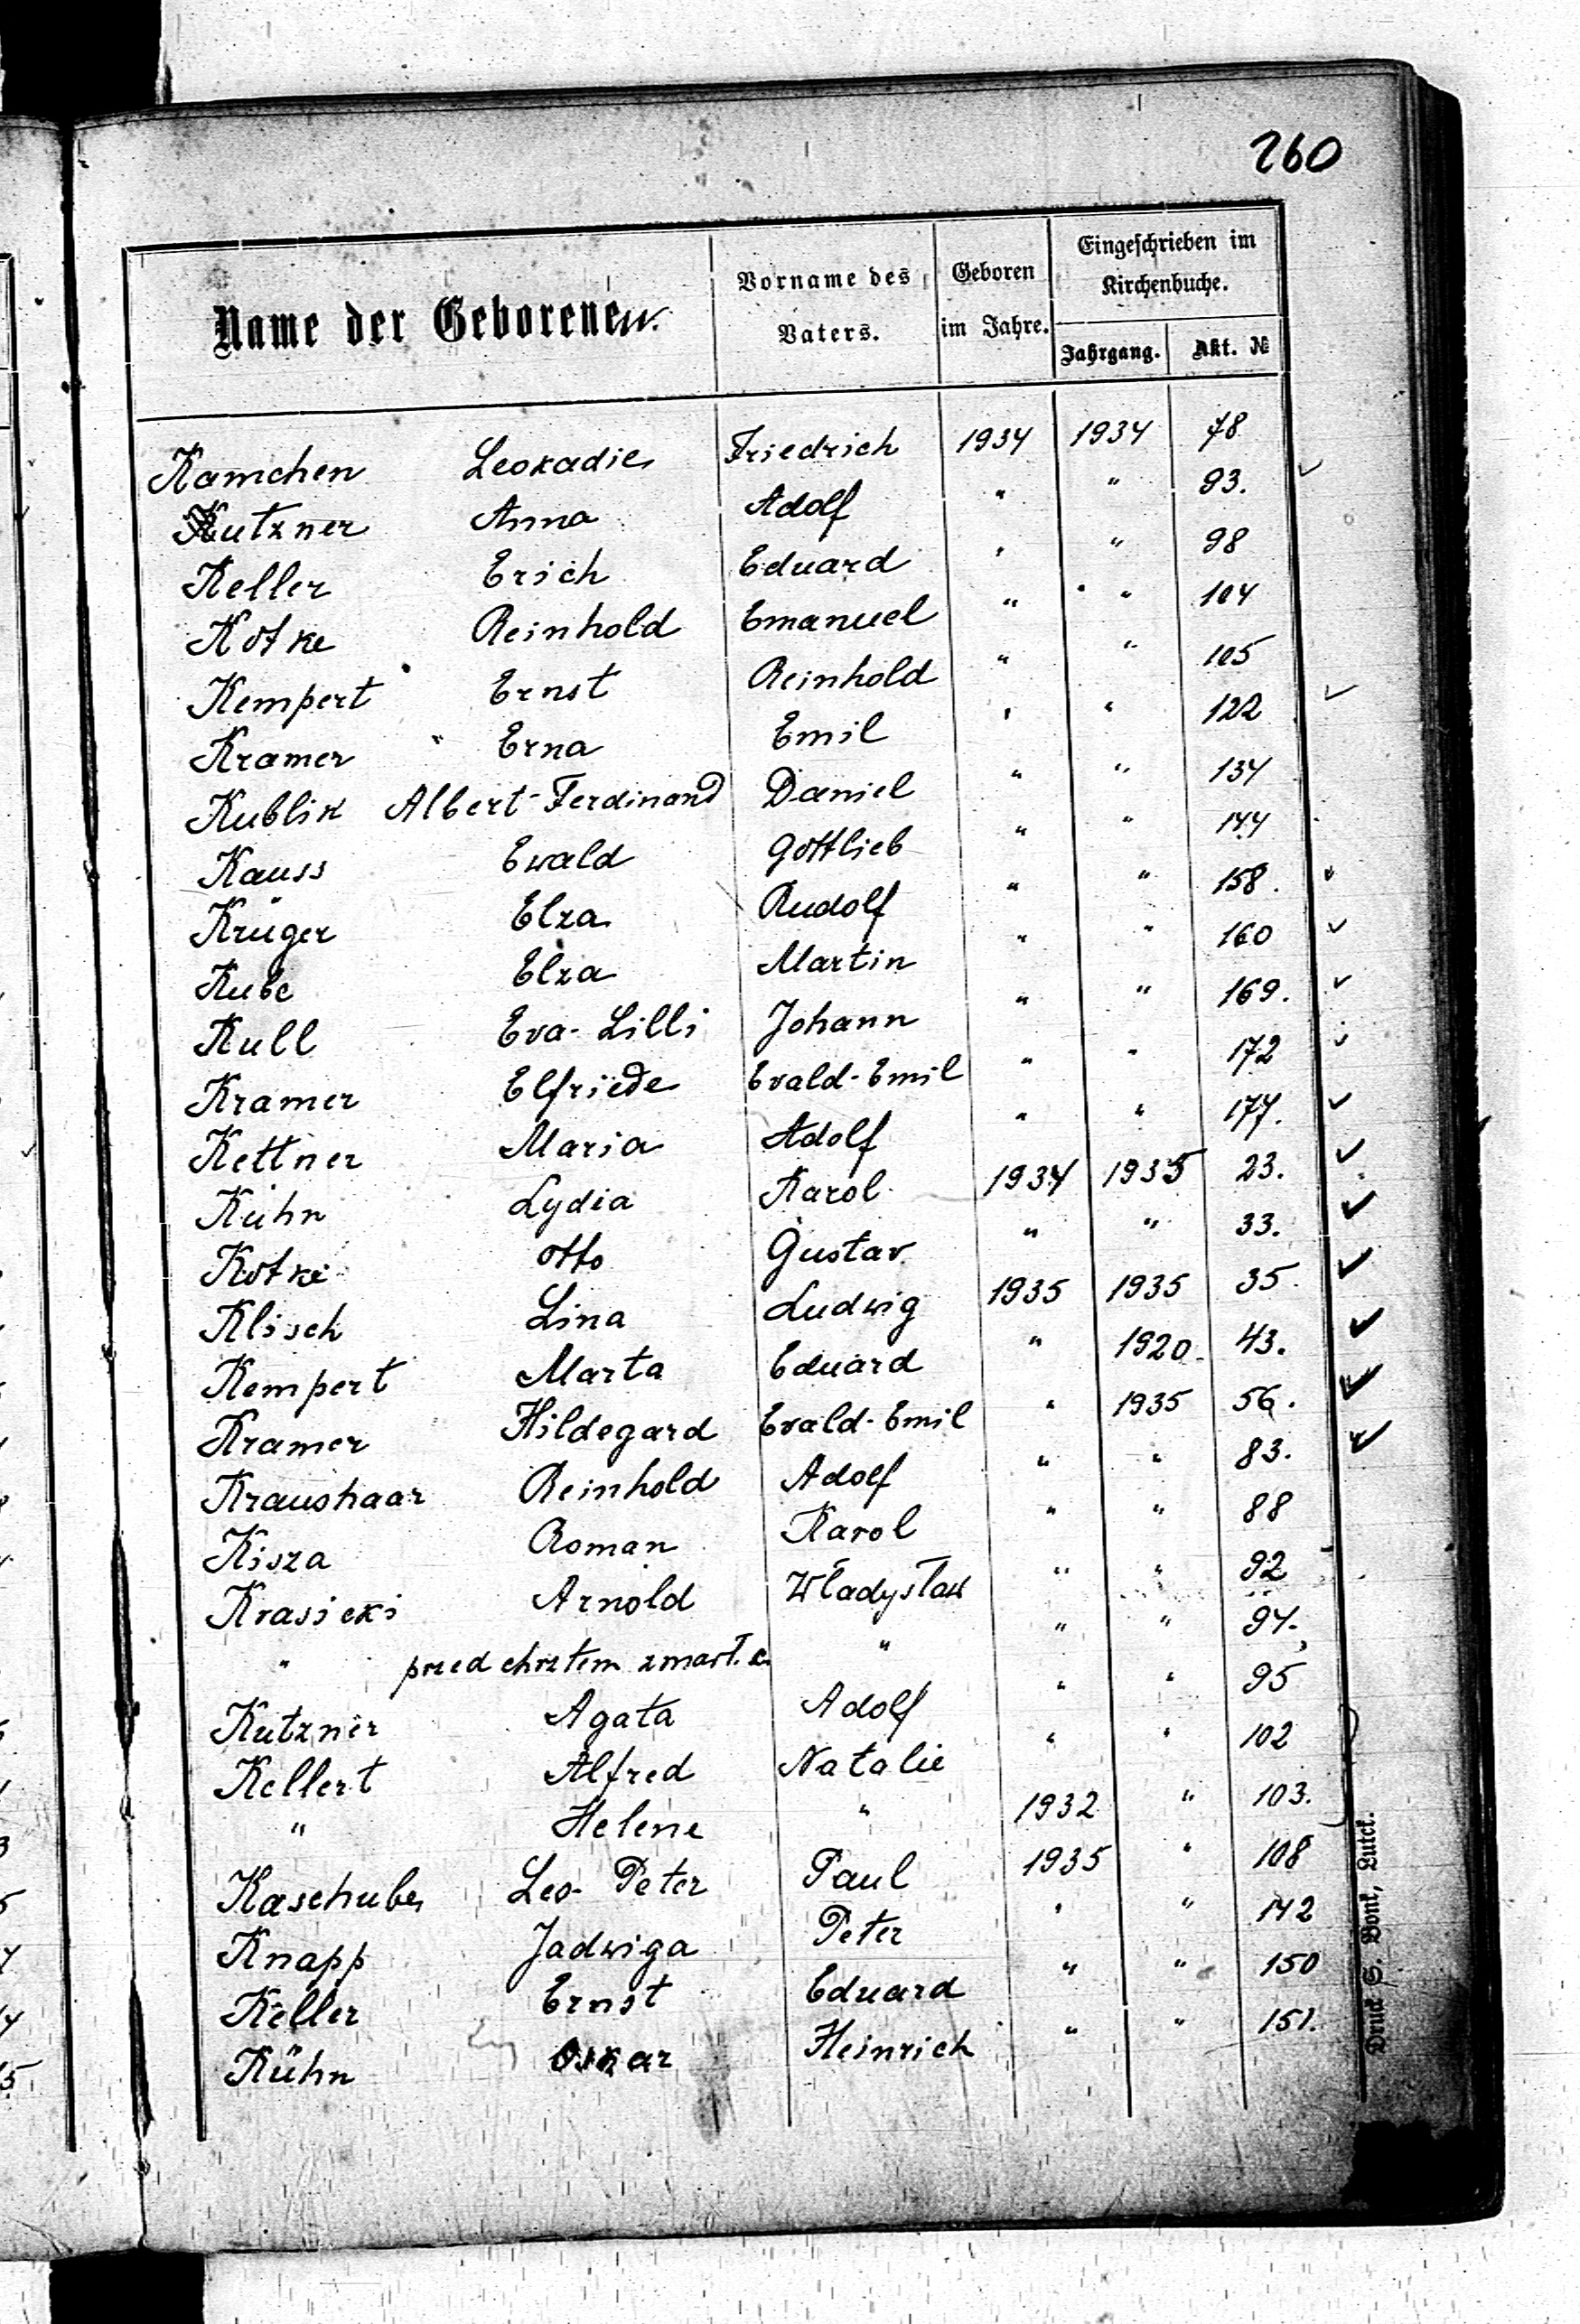 260
Name der Geborenen.
Vorname des Vaters.
Geboren im Jahre.
Eingeschrieben im Kirchenbuche.
Jahrgang. Akt. №
Kamchen Leokadie Friedrich 1934 1934 78
Kutzner Anna Adolf " " 93.
Keller Erich Eduard " " 98
Kotke Reinhold Emanuel " " 104
Kempert Ernst Reinhold " " 105
Kramer Erna Emil " " 122
Kublik Albert-Ferdinand Daniel " " 134
Kauss Ewald Gottlieb " " 144
Krüger Elza Rudolf " " 158.
Kube Elza Martin " " 160
Kull Eva-Lilli Johann " " 169.
Kramer Elfriede Evald-Emil " " 172
Kettner Maria Adolf " " 177.
Kühn Lydia Karol 1934 1935 23.
Kotke Otto Gustav " " 33.
Klisch Lina Ludwig 1935 1935 35.
Kempert Marta Eduard " 1920. 43.
Kramer Hildegard Evald-Emil " 1935 56.
Kraushaar Reinhold Adolf " " 83.
Kisza Roman Karol " " 88
Krasicki Arnold Władysław " " 92
" przed chrztem zmarł. " " " 94.
Kutzner Agata Adolf " " 95
Kellert Alfred Natalie " " 102
" Helene " 1932 " 103.
Kaschube Leo-Peter Paul 1935 " 108
Knapp Jadwiga Peter " " 142
Keller Ernst Eduard " " 150
Kühn Oskar Heinrich " " 151.
Druck S. Bonk, Lutck.